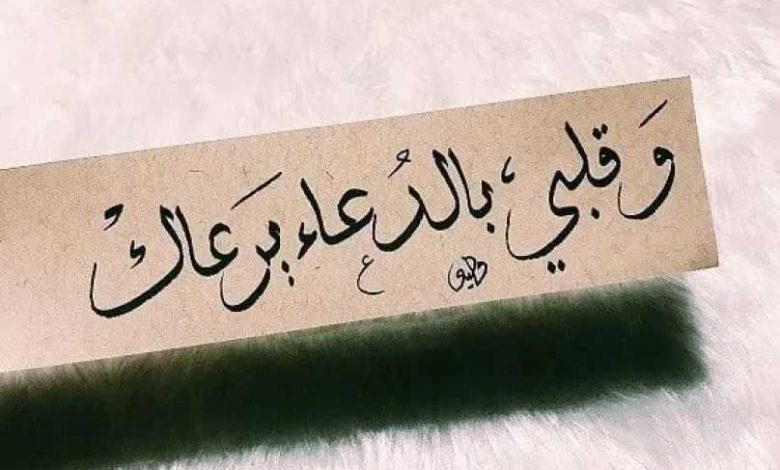 وَقلبي، بالدُعاء يَرعاكْ